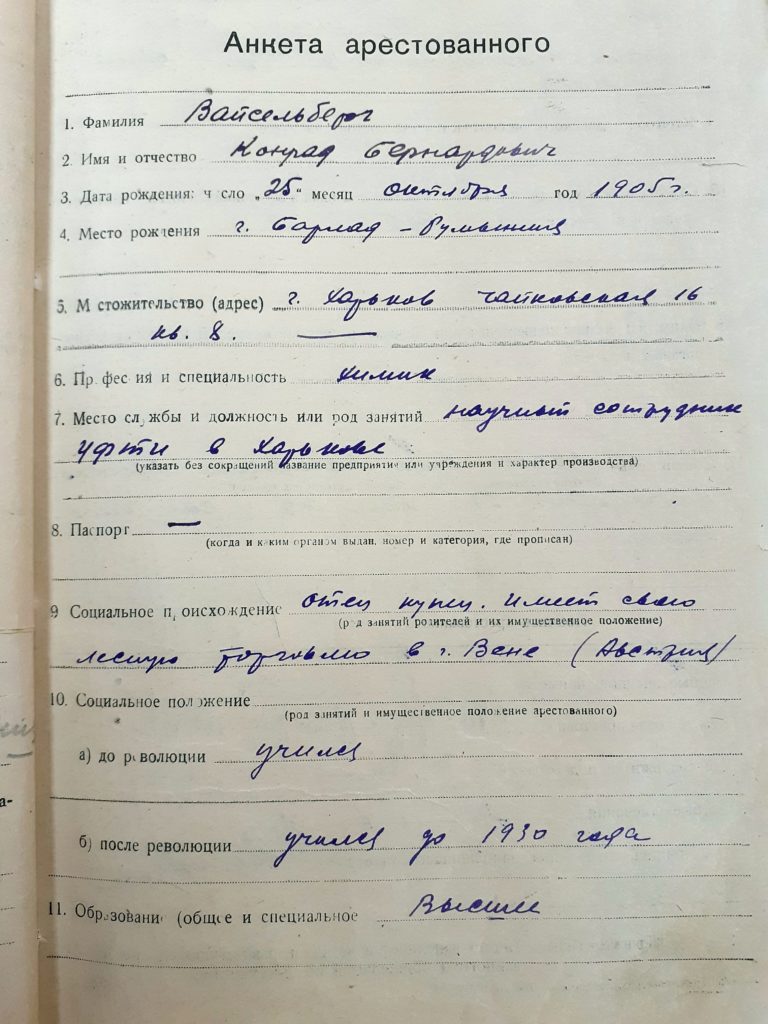 Анкета арестованного
1. Фамилия Вайсельберг
2. Имя и отчество Конрад Бернардович
3. Дата рождения: число „25" месяц октября год 1905 г.
4. Место рождения г. Барлад – Румыния
5. Местожительство (адрес) г. Харьков Чайковская 16
кв. 8.
6. Профессия и специальность химик
7. Место службы и должность или род занятий научный сотрудник
УФТИ в Харькове
(указать без сокращений название предприятия или учреждения и характер производства)
8. Паспорт —
(когда и каким органом выдан, номер и категория, где прописан)
9 Социальное происхождение отец купец. Имеет свою
(род занятий родителей и их имущественное положение)
лесную торговлю в г. Вене (Австрия)
10. Социальное положение
(род занятий и имущественное положение арестованного)
а) до революции учился
б) после революции учился до 1930 года
11. Образование (общее и специальное Высшее